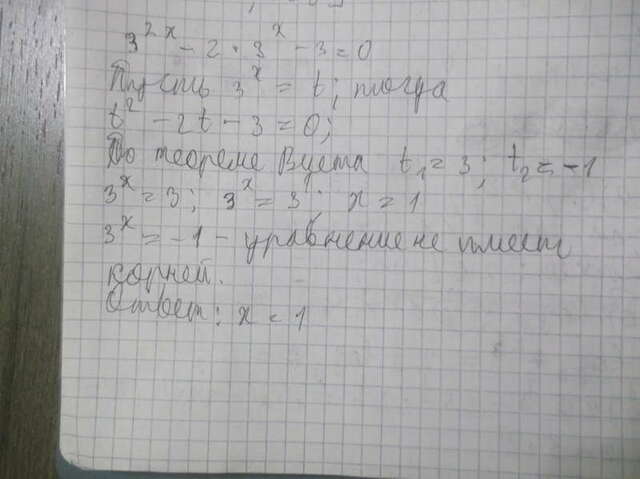 3^{2x} - 2 · 3^x - 3 = 0
Пусть 3^x = t; тогда
t^2 - 2t - 3 = 0;
По теореме Виета t_1 = 3; t_2 = -1
3^x = 3; 3^x = 3^1; x = 1
3^x = -1 - уравнение не имеет
корней.
Ответ: x = 1